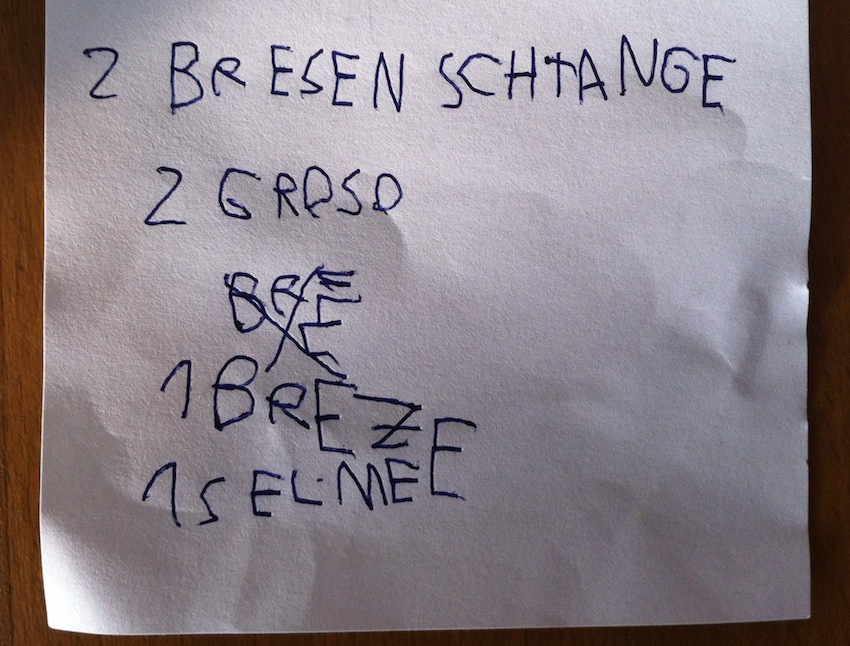 2 BRESEN SCHTANGE
2 GROSO
BRE
1 BREZE
1 SELMEE